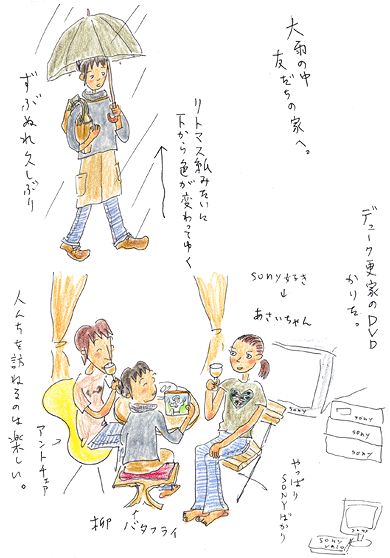 大雨の中
友だちの家へ。
ずぶぬれ久しぶり
リトマス紙みたいに
下から色が変わってゆく
デューク更家のDVD
かりた。
sony好き
↓
あさいちゃん
人んちを訪ねるのは楽しい。
アントチェア
柳 バタフライ
やっぱり
SONYばかり
SONY
SONY
SONY
SONY
SONY
SONY
VAIO